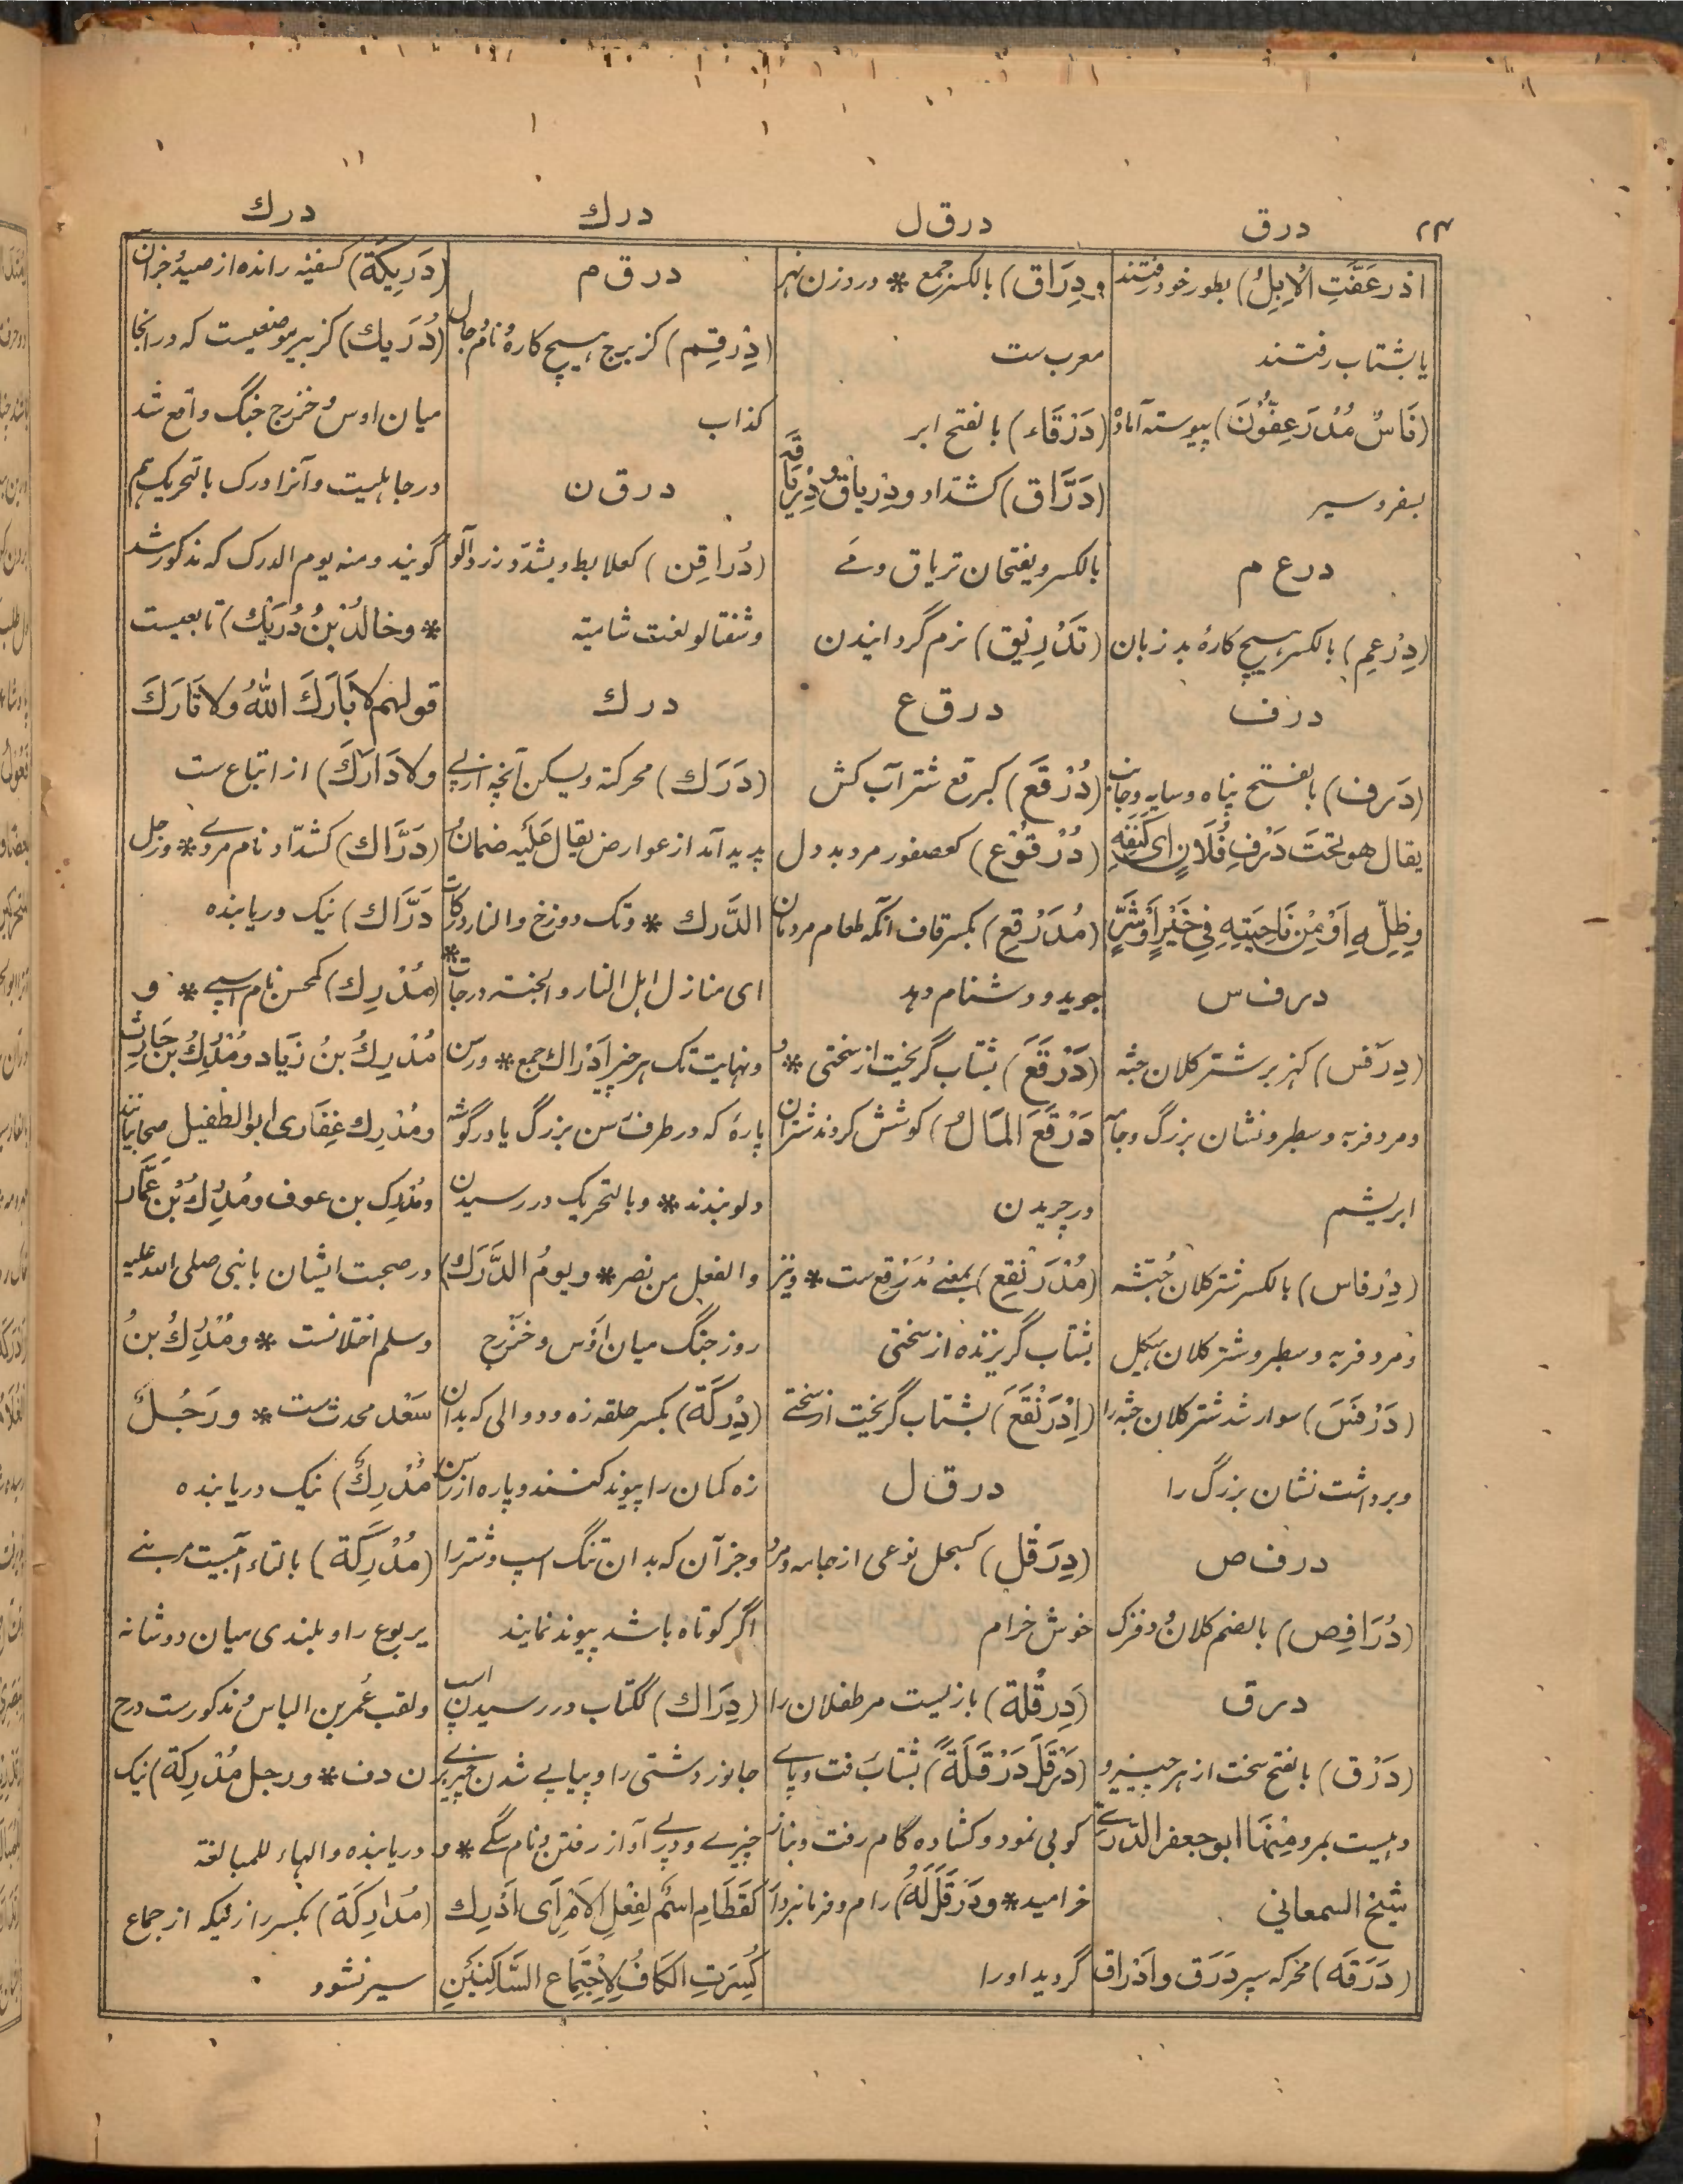 ۲۴ درق درق ل درك درك
اذرعَفَّتِ الْاِبِلُ) بطور خود رفتند
یا بشتاب رفتند
(نَاسٌ مُدْرَعِفُّوْنَ) پیوسته آماده
بسفر و سیر
درع م
(دِرْعِم) بالکسر ہیچ کارۂ بد زبان
درف
(دَرف) بالفتح پناه و سایه و جانب
یقال هو تحتَ دَرْفِ فُلَانٍ ای کَنَفِهِ
وِظِلِّهِ اَوْ مِنْ نَاحِیَتِهِ فِي خَیْرٍ اَوْ شَرٍّ
درف س
(دِرَفْس) کہزبر شتر کلان جثه
و مرد فربه و سطبر و نشان بزرگ و جامه
ابریشم
(دِرْفاس) بالکسر شتر کلان جُثّه
و مرد فربه و سطبر و شتر کلان ہیکل
(دَرْفَسَ) سوار شد شتر کلان جثه را
و برداشت نشان بزرگ را
درف ص
(دُرَافِص) بالضم کلان
درق
(دَرْق) بالفتح سخت از ہر چیز و
دہیست بمرو مِنْهَا ابو جعفر الدَّرقی
شیخ السمعاني
(دَرَقَه) محرکه سپر دَرَق و اَدْرَاق
و دِرَاق) بالکسر جمع * و روزن نہر
معرب ست
(دَرْقَاء) بالفتح ابر
(دَرَّاق) کشدّاد و دِرْیاق و دِرْیَاقَه
بالکسر و یفتحان تریاق و مَے
(تَدْرِیْق) نرم گردانیدن
درق ع
(دُرْقَع) کبرقع شتر آب کش
(دُرْقُوْع) کعصفور مرد بد دل
(مُدَرْقِع) بکسر قاف آنکه طعام مردمان
جوید و دشنام دہد
(دَرْقَعَ) بشتاب گریخت از سختی * و
دَرْقَعَ المَالُ) کوشش کردند شتران
در چریدن
(مُدْرَنْقِع) بمعنے مُدَرْقِع ست * و نیز
بشتاب گریزنده از سختی
(اِدْرَنْقَعَ) بشتاب گریخت از سختے
درق ل
(دِرَقْل) کسبحل نوعی از جامه و مرد
خوش خرام
(دِرقْلة) بازیست مر طفلان را
(دَرْقَلَ دَرْقَلَةً) بشتاب رفت و پاے
کوبی نمود و کشاده گام رفت و بناز
خرامید * و دَرْقَلَ لَهُ) رام و فرمانبردار
گردید او را
درق م
(دِرْقِم) کزبرج ہیچ کارۂ و نام رجال
کذاب
درق ن
(دُراقِن) کعلابط و یشدّد زردآلو
و شفتالو لغت شامیّه
درك
(دَرَك) محرکة و یسکن آنچه از پے
پدید آمد از عوارض یقال عَلَیْه ضمانُ
الدَّرك * و تک دوزخ والنار درکات
ای منازل اہل النار والجنة درجات *
و نہایت تک ہر چیز اَدْرَاك جمع * و رسن
پارۂ که در طرف رسن بزرگ یا در گوشه
دلو بندند * و بالتحریک در رسیدن
والفعل من نصر * و یومُ الدَّرَك)
روز جنگ میان اَوْس و خَزْرج
(دِرْکَة) بکسر حلقه زه و دوالی که بدان
زه کمان را پیوند کنند و پاره از رسن
و جز آن که بدان تنگ اسپ و شتر را
اگر کوتاه باشد پیوند نمایند
(دِرَاك) ککتاب در رسیدن اسپ
جانور دشتی را و پیاپے شدن چیزے بر
چیزے و در پے آواز رفتن و نام سگے * و
کَقَطَامِ اسْمٌ لِفِعْلِ الْاَمْرِ اَی اَدْرِك
کُسِرَتِ الکَافُ لِاِجْتِمَاعِ السَّاکِنَیْنِ
(دَرِیكَة) کسفینه رانده از صید و جز آن
(دُرَیك) کزبیر موضعیست که در انجا
میان اوس و خزرج جنگ واقع شد
در جاہلیت و آنرا درک بالتحریک ہم
گویند و منه یوم الدرک که مذکور شد
* و خالدُ بْنُ دُرَیْك) تابعیست
قولہم لَا بَارَكَ اللّٰهُ وَلَا تَارَكَ
وَلَا دَارَكَ) از اتباع ست
(دَرَّاك) کشدّاد نام مردے * و رجل
دَرَّاك) نیک دریابنده
(مُدْرِك) کمحسن نام اسپے * و
مُدْرِكُ بنُ زِیَاد و مُدْرِكُ بن حَارِث
و مُدْرِك غِفَاری ابو الطفیل صحابیانند
و مُدْرِک بن عوف و مُدْرِكُ بْنُ عَمَّار
در صحبت ایشان با نبی صلی الله علیه
وسلم اختلافست * و مُدْرِكُ بنُ
سَعْد محدث ست * و رَجُلٌ
مُدْرِكٌ) نیک دریابنده
(مُدْرِكَة) بالتاء آبیست مر بنے
یربوع را و بلندی میان دو شانه
و لقب عُمر بن الیاس و مذکورست در خ
ن د ف * و رجل مُدْرِکَة) نیک
دریابنده والہاء للمبالغة
(مُدَارِكَة) بکسر را زنیکه از جماع
سیر نشود